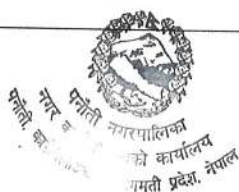 पनौती नगरपालिका
नगर को कार्यालय
पनौती, मती प्रदेश, नेपाल